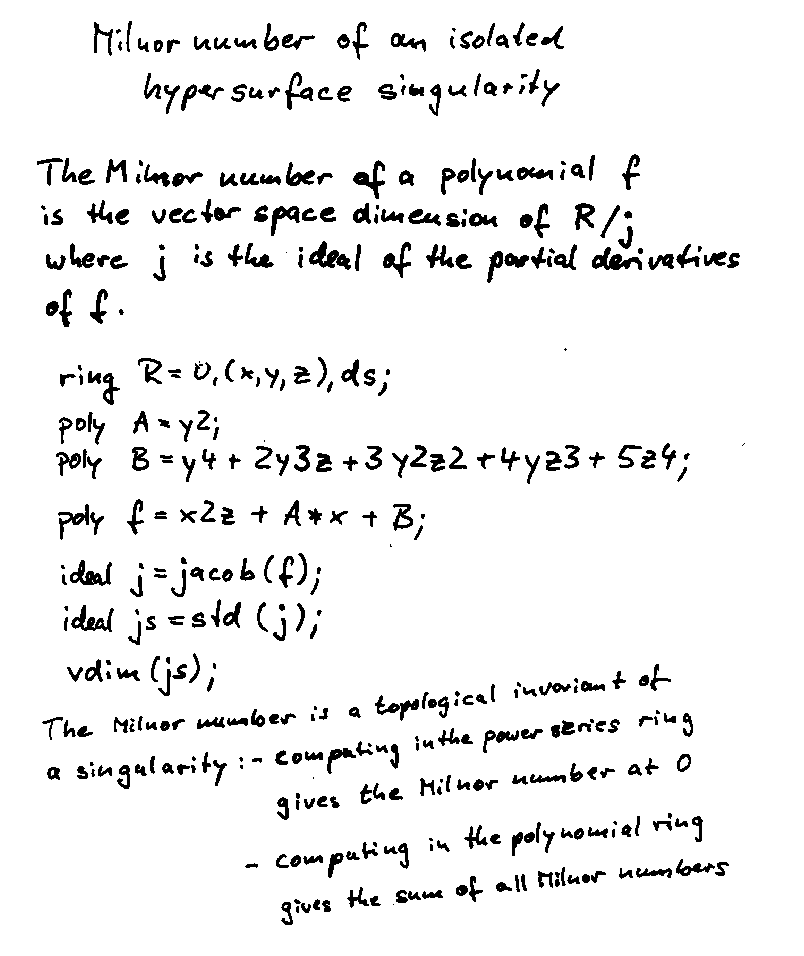 Milnor number of an isolated
hypersurface singularity
The Milnor number of a polynomial f
is the vector space dimension of R/j
where j is the ideal of the partial derivatives
of f.
ring R = 0,(x,y,z),ds;
poly A = y2;
poly B = y4 + 2y3z + 3y2z2 + 4yz3 + 5z4;
poly f = x2z + A*x + B;
ideal j = jacob(f);
ideal js = std(j);
vdim(js);
The Milnor number is a topological invariant of
a singularity: - computing in the power series ring
gives the Milnor number at 0
- computing in the polynomial ring
gives the sum of all Milnor numbers